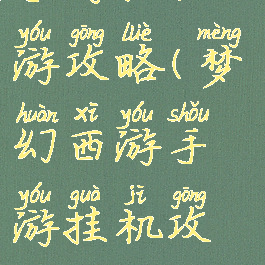 yóu gōng lüè mèng
游攻略(梦
huàn xī yóu shǒu
幻西游手
yóu guà jī gōng
游挂机攻